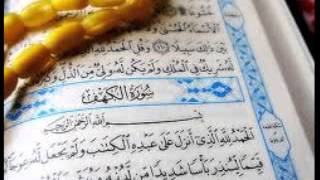 الْأَسْمَاءُ الْحُسْنَىٰ وَ
بَيْنَ ذَٰلِكَ سَبِيلًا ١١٠ وَقُلِ الْحَمْدُ لِلَّهِ
شَرِيكٌ فِي الْمُلْكِ وَلَمْ يَكُن لَّهُ وَلِيٌّ مِّنَ الذُّلِّ وَكَبِّرْ
سُورَةُ الْكَهْفِ
بِسْمِ اللَّهِ الرَّحْمَٰنِ الرَّحِيمِ
الْحَمْدُ لِلَّهِ الَّذِي أَنزَلَ عَلَىٰ عَبْدِهِ الْكِتَٰبَ وَلَمْ يَجْعَل لَّهُ عِوَجَا
قَيِّمًا لِّيُنذِرَ بَأْسًا شَدِيدًا مِّن لَّدُنْهُ